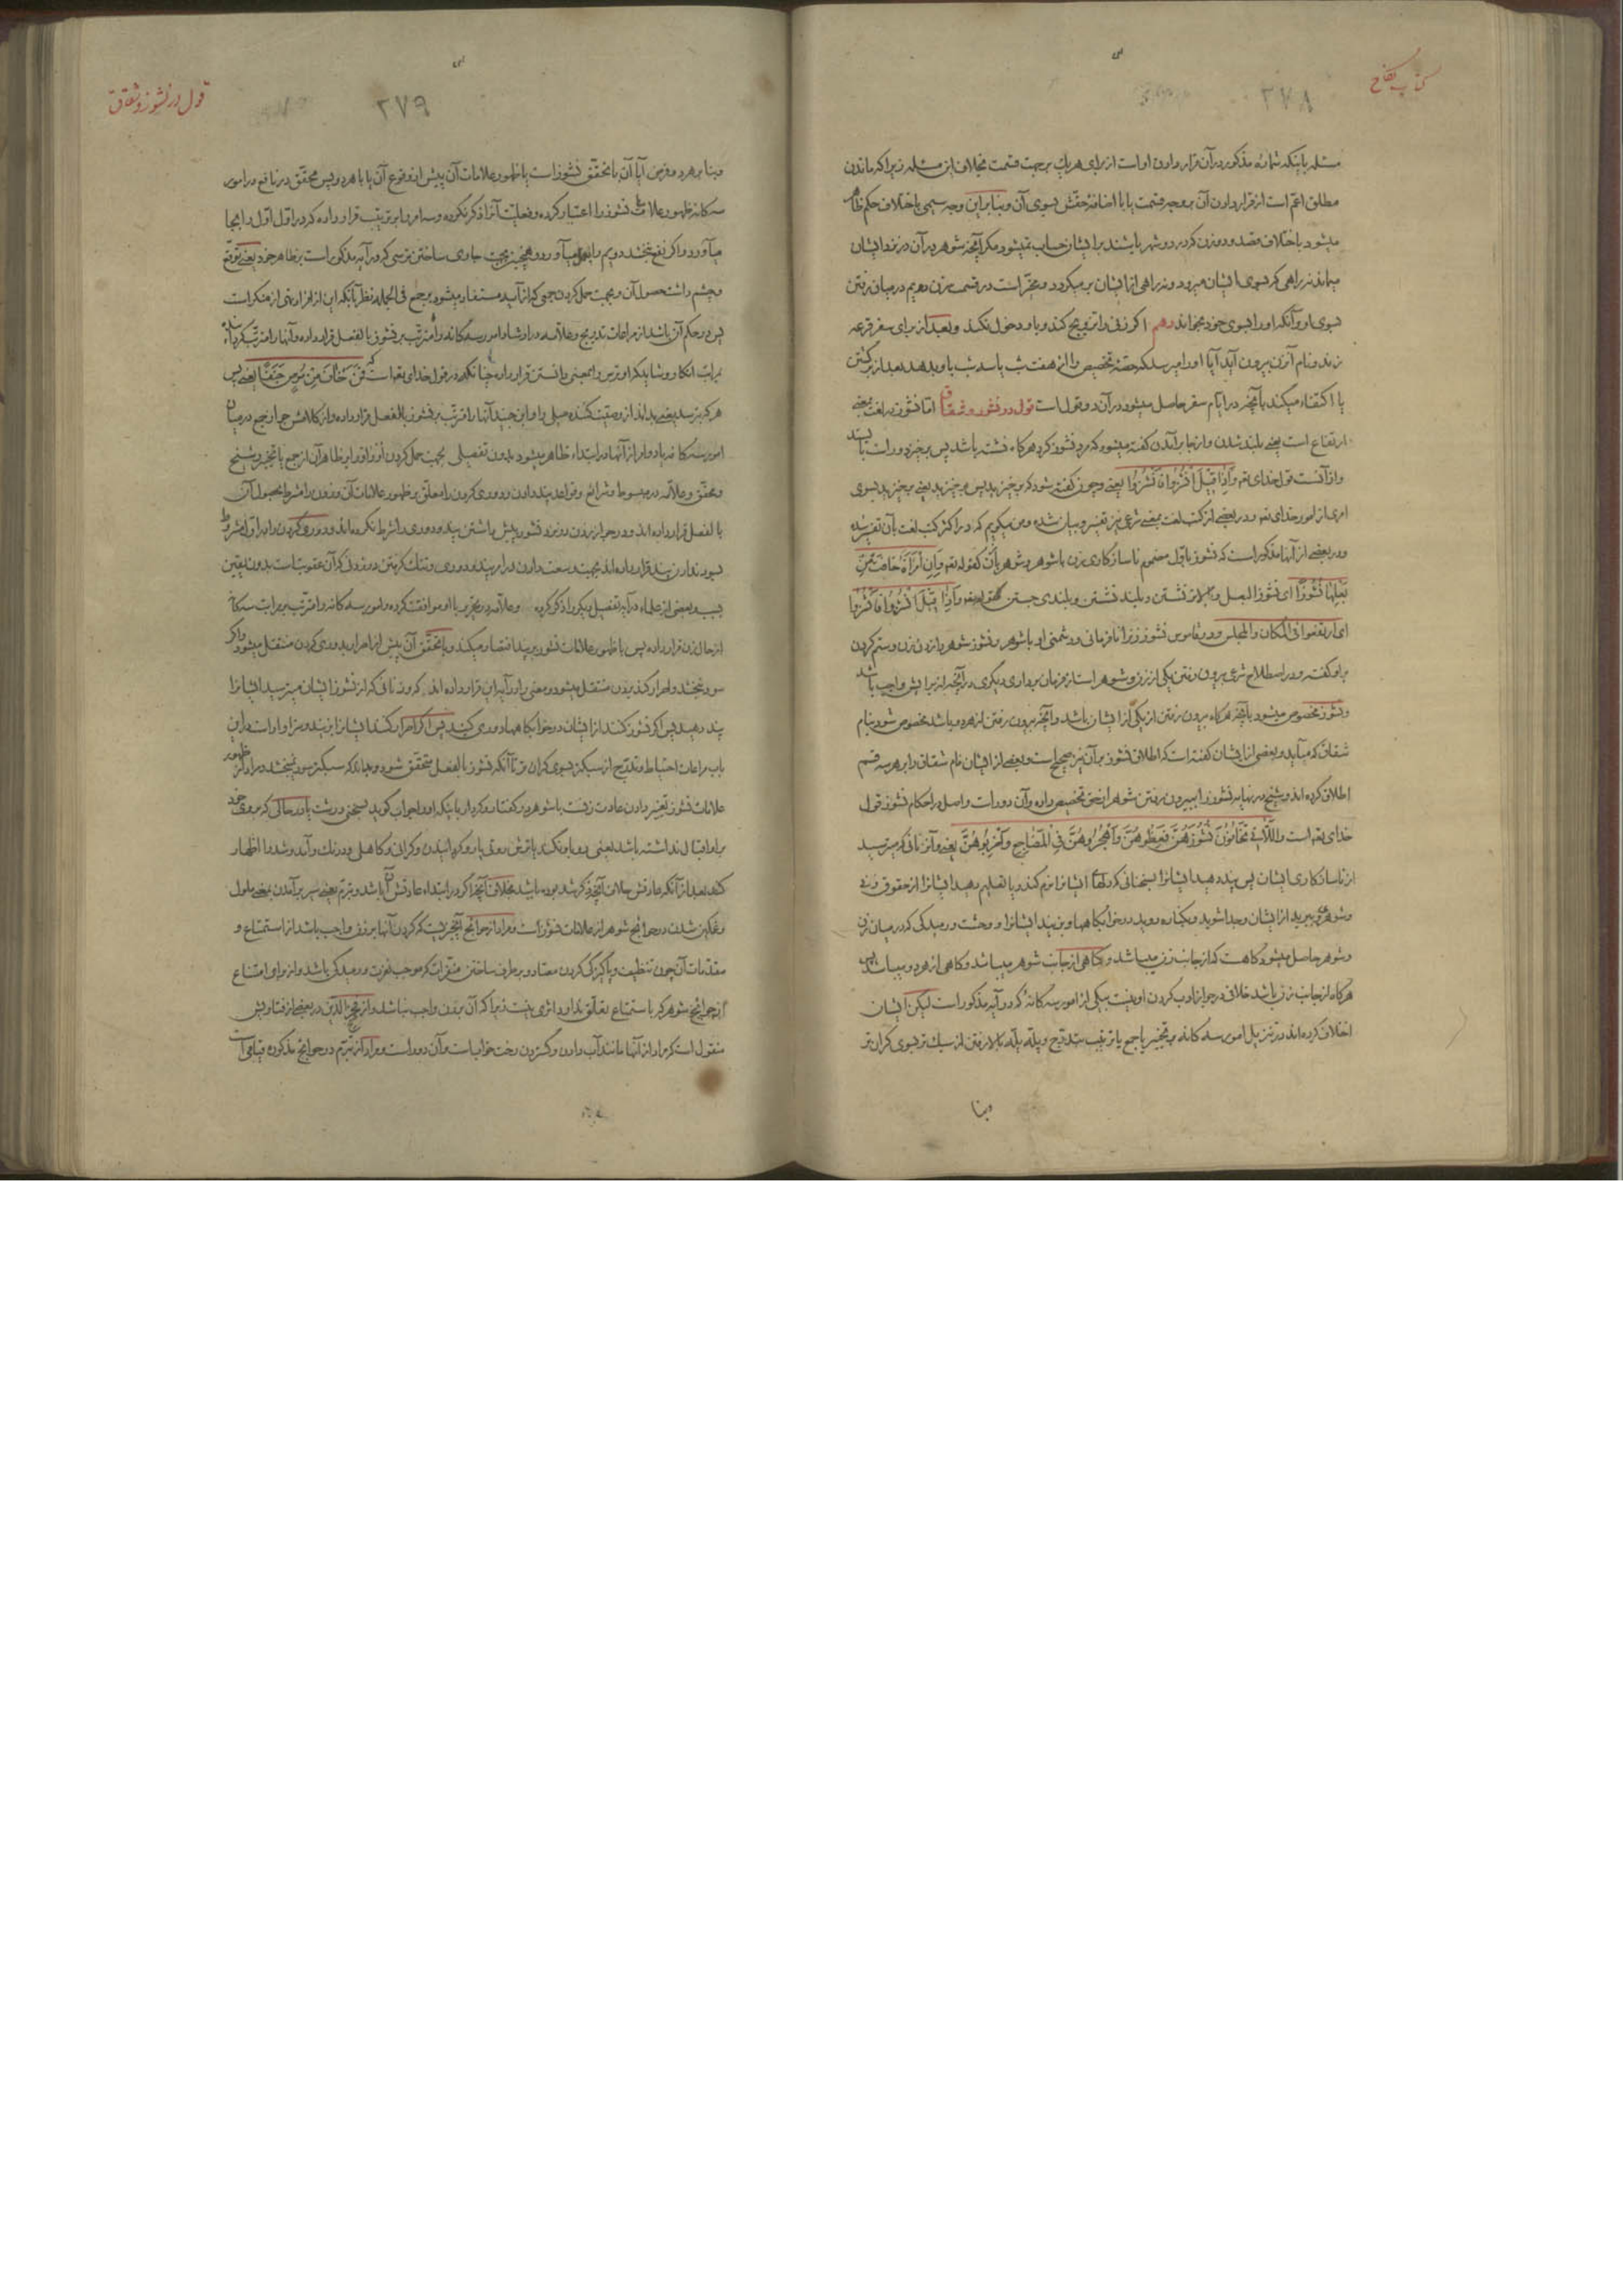 کتاب نکاح
۲۷۸
مسئله باینکه شماره مذکور در آن قرار دادن او است از برای هر یک بر جهت قسمت بخلاف این مسئله زیرا که ماندن
مطلق اعم است از قرار دادن آن بر وجه قسمت یا با اضافهٔ حقش بسوی آن و بنا بر این وجه سیمی باختلاف حکم ظاهر
میشود باختلاف قصد و دو زن که در دو شهر باشند بر ایشان حساب نمیشود مگر آنچه شوهر در آن در نزد ایشان
میماند نه راهی که بسوی ایشان میرود و نه راهی از ایشان بر میگردد و مخیر است در قسمت زن دهیم در میان رفتن
بسوی او و آنکه او را بسوی خود بخواند دهم اگر زنی را تزویج کند و با و دخول نکند و بعد از برای سفر قرعه
زند و بنام آن زن بیرون آید آیا او را میرسد که حصهٔ تخصیص را از هفت شب یا سه شب باو بدهد بعد از برگشتن
یا اکتفاء میکند بآنچه در ایام سفر حاصل میشود در آن دو قول است قول در نشوز و شقاق اما نشوز در لغت بمعنی
ارتفاع است یعنی بلند شدن و از جا بر آمدن گفته میشود که مرد نشوز کرد هر گاه نشسته باشد پس برخیزد و راست بایستد
و از آنست قول خدای تعه وَاِذا قیلَ انْشُزُوا فَانْشُزُوا یعنی و چون گفته شود که برخیزید پس برخیزید یعنی برخیزید بسوی
امری از امور خدای تعه و در بعضی از کتب لغت بمعنی شرعی نیز تفسیر و بیان شده و من میگویم که در اکثر کتب لغت بآن تفسیر شده
و در بعضی از آنها مذکور است که نشوز باول مضموم ناسازگاری زن باشوهر و شوهر بازن کقوله تعه وَاِنِ امْرَأَةٌ خافَتْ مِنْ
بَعْلِها نُشُوزًا ای نشوز البعل و بلند نشستن و بلندی جستن کقوله تعه وَاِذا قیلَ انْشُزُوا فَانْشُزُوا
ای ارتفعوا فی المکان والمجلس و در قاموس نشوز زن را نافرمانی و دشمنی او باشوهر و نشوز شوهر را زدن زن و ستم کردن
باو گفته و در اصطلاح شرع بیرون رفتن یکی از زن و شوهر است از فرمان برداری دیگری در آنچه از برایش واجب باشد
و نشوز مخصوص میشود بآنچه هر گاه بیرون رفتن از یکی از ایشان باشد و آنچه بیرون رفتن از هر دو باشد مخصوص شود بنام
شقاق که میآید و بعضی از ایشان گفته است که اطلاق نشوز بر آن نیز صحیح است و بعضی از ایشان نام شقاق را بر هر سه قسم
اطلاق کرده اند و شیخ در نهایه نشوز را به بیرون رفتن شوهر از حق تخصیص داده و آن دور است و اصل در احکام نشوز قول
خدای تعه است وَاللّاتی تَخافُونَ نُشُوزَهُنَّ فَعِظُوهُنَّ وَاهْجُرُوهُنَّ فِی الْمَضاجِعِ وَاضْرِبُوهُنَّ یعنی و آن زنانی که میترسید
از ناسازکاری ایشان پس پند دهید ایشانرا بسخنانی که دلهای ایشانرا نرم کند و یا تعلیم دهید ایشانرا از حقوق
و شوهری و ببرید از ایشان و جدا شوید و بکناره روید در خوابگاهها و بزنید ایشانرا و وحشت و رمیدگی که در میان زن
و شوهر حاصل میشود گاه هست که از جانب زن میباشد و گاهی از جانب شوهر میباشد و گاهی از هر دو میباشد پس
هر گاه از جانب زن باشد خلافی در جواز ادب کردن او نیست بیکی از امور سه گانهٔ که در آیه مذکور است لیکن ایشان
اختلاف کرده اند در تنزیل امور سه گانه بر تخییر یا جمع یا ترتیب بتدریج و پله پله بالا رفتن از سبک تر بسوی گران تر
وبنا
قول در نشوز و شقاق
۲۷۹
وبنا بر هر دو فرض آیا آن با تحقق نشوز است یا ظهور علامات آن پیش از وقوع آن یا با هر دو پس محقق در نافع در امور
سه گانه ظهور علامات نشوز را اعتبار کرده و فعلیت آنرا ذکر نکرده و سه امر را بر ترتیب قرار داده که در اول اول را بجا
میآورد و اگر نفع نبخشد دویم را بعمل میآورد و همچنین بجهت جاری ساختن ترسی که در آیه مذکور است بر ظاهر خود یعنی توقع
و چشم داشت حصول آن و بجهت حمل کردن جمعی که از آیه مستفاد میشود بر جمع فی الجمله نظر بآنکه این از افراد نهی از منکر است
پس در حکم آن باشد از مراعات تدریج و علامه در ارشاد امور سه گانه را مترتب بر نشوز بالفعل قرار داده و آنها را مترتب گردانیده
بمراتب انکار و شاید که او ترس را بمعنی دانستن قرار داده چنانکه در قول خدای تعه است که فَمَنْ خافَ مِنْ مُوصٍ جَنَفًا یعنی پس
هر که بترسد یعنی بداند از وصیت کننده میلی را و ابن جنید آنها را مترتب بر نشوز بالفعل قرار داده و از کلامش جواز جمع در میان
امور سه گانه یا دوتا را از آنها در ابتداء ظاهر میشود بدون تفصیلی بجهت حمل کردن او واو را بر ظاهر آن از جمع یا تخییر و شیخ
و محقق و علامه در مبسوط و شرائع و قواعد پند دادن و دوری کردن را معلق بر ظهور علامات آن و زدن را مشروط بحصول آن
بالفعل قرار داده اند و در جواز زدن در نزد نشوز پیش داشتن پند و دوری را شرط نکرده اند و دوری کردن را در اول مشروط
بسود ندادن پند قرار داده اند
سود نبخشد و اصرار کند بزدن منتقل میشود و معنی را در آیه این قرار داده اند که و زنانی که از نشوز ایشان میترسید ایشانرا
پند دهید پس اگر نشوز کنند از ایشان در خوابگاهها دوری کنید پس اگر اصرار کنند ایشانرا بزنید و سزاوار است در این
باب مراعات احتیاط و تدریج از سبکتر بسوی گران تر تا آنکه نشوز بالفعل متحقق شود و بداند که سبکتر سود نمیبخشد و مراد از ظهور
علامات نشوز تغییر دادن عادت زنست باشوهر در گفتار و کردار باینکه او را جواب گوید بسخنی درشت یا در حالی که بروی خود
بر او اقبال نداشته باشد
کند بعد از آنکه عادتش خلاف آنچه ذکر شد بوده باشد بخلاف آنچه اگر در ابتداء عادتش آن باشد و تبرم یعنی بسر بر آمدن یعنی ملول
و غمگین شدن در حوائج شوهر از علامات نشوز است و مراد از حوائج آنچیز نیست که کردن آنها بر زن واجب باشد از استمتاع و
مقدمات آن چون تنظیف و پاکیزگی کردن معتاد و بر طرف ساختن منفرات که موجب نفرت و رمیدگی باشد و از برای امتناع
از حوائج شوهر که باستمتاع تعلق ندارد اثری نیست زیرا که آن بر زن واجب نمیباشد و از فخر الدین در بعضی از فتاویش
منقول است که مراد از آنها مانند آب دادن و گستردن رخت خواب است و آن دور است و مراد از تبرم در حوائج مذکوره